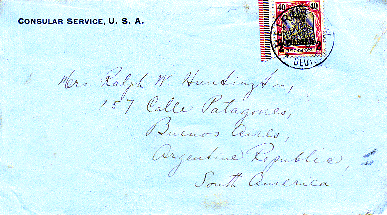 CONSULAR SERVICE, U. S. A.
40 40
Mrs Ralph W. Huntington,
157 Calle Patagones,
Buenos Aires,
Argentine Republic,
South America